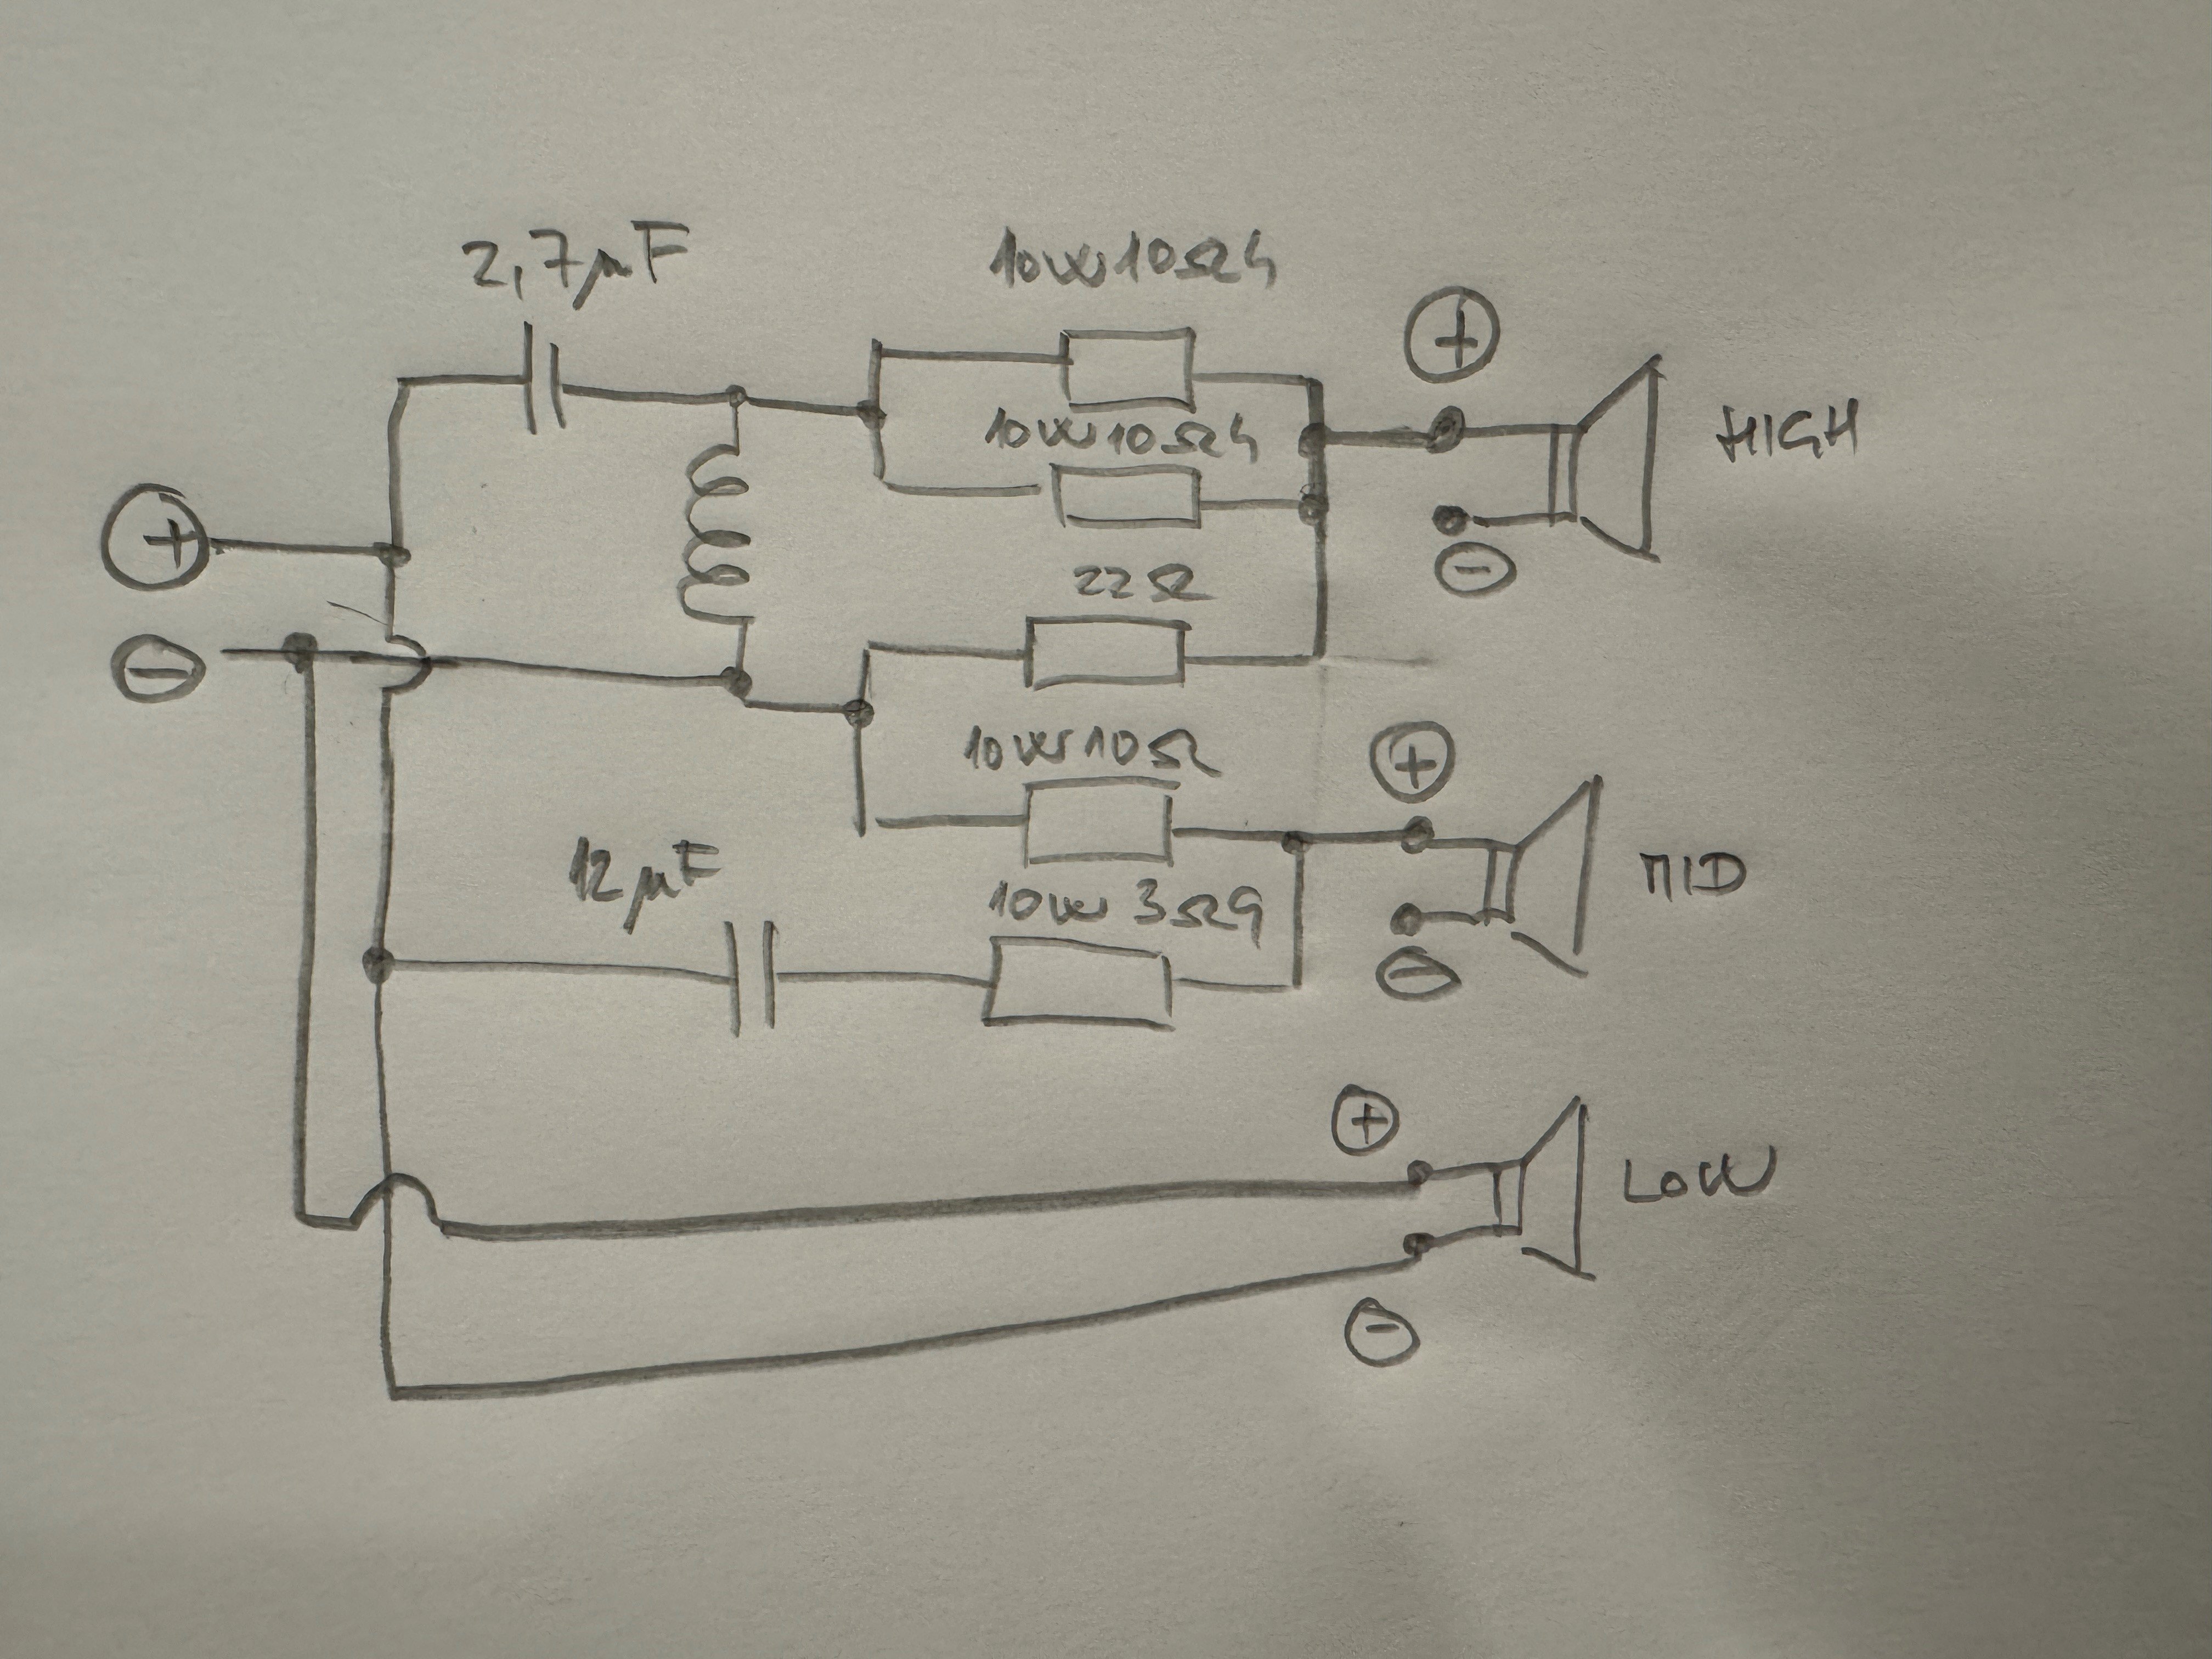 2,7μF
10W10ΩJ
+
10W10ΩJ
HIGH
+
-
22Ω
-
10W10Ω
+
12μF
MID
10W 3Ω9
-
+
LOW
-